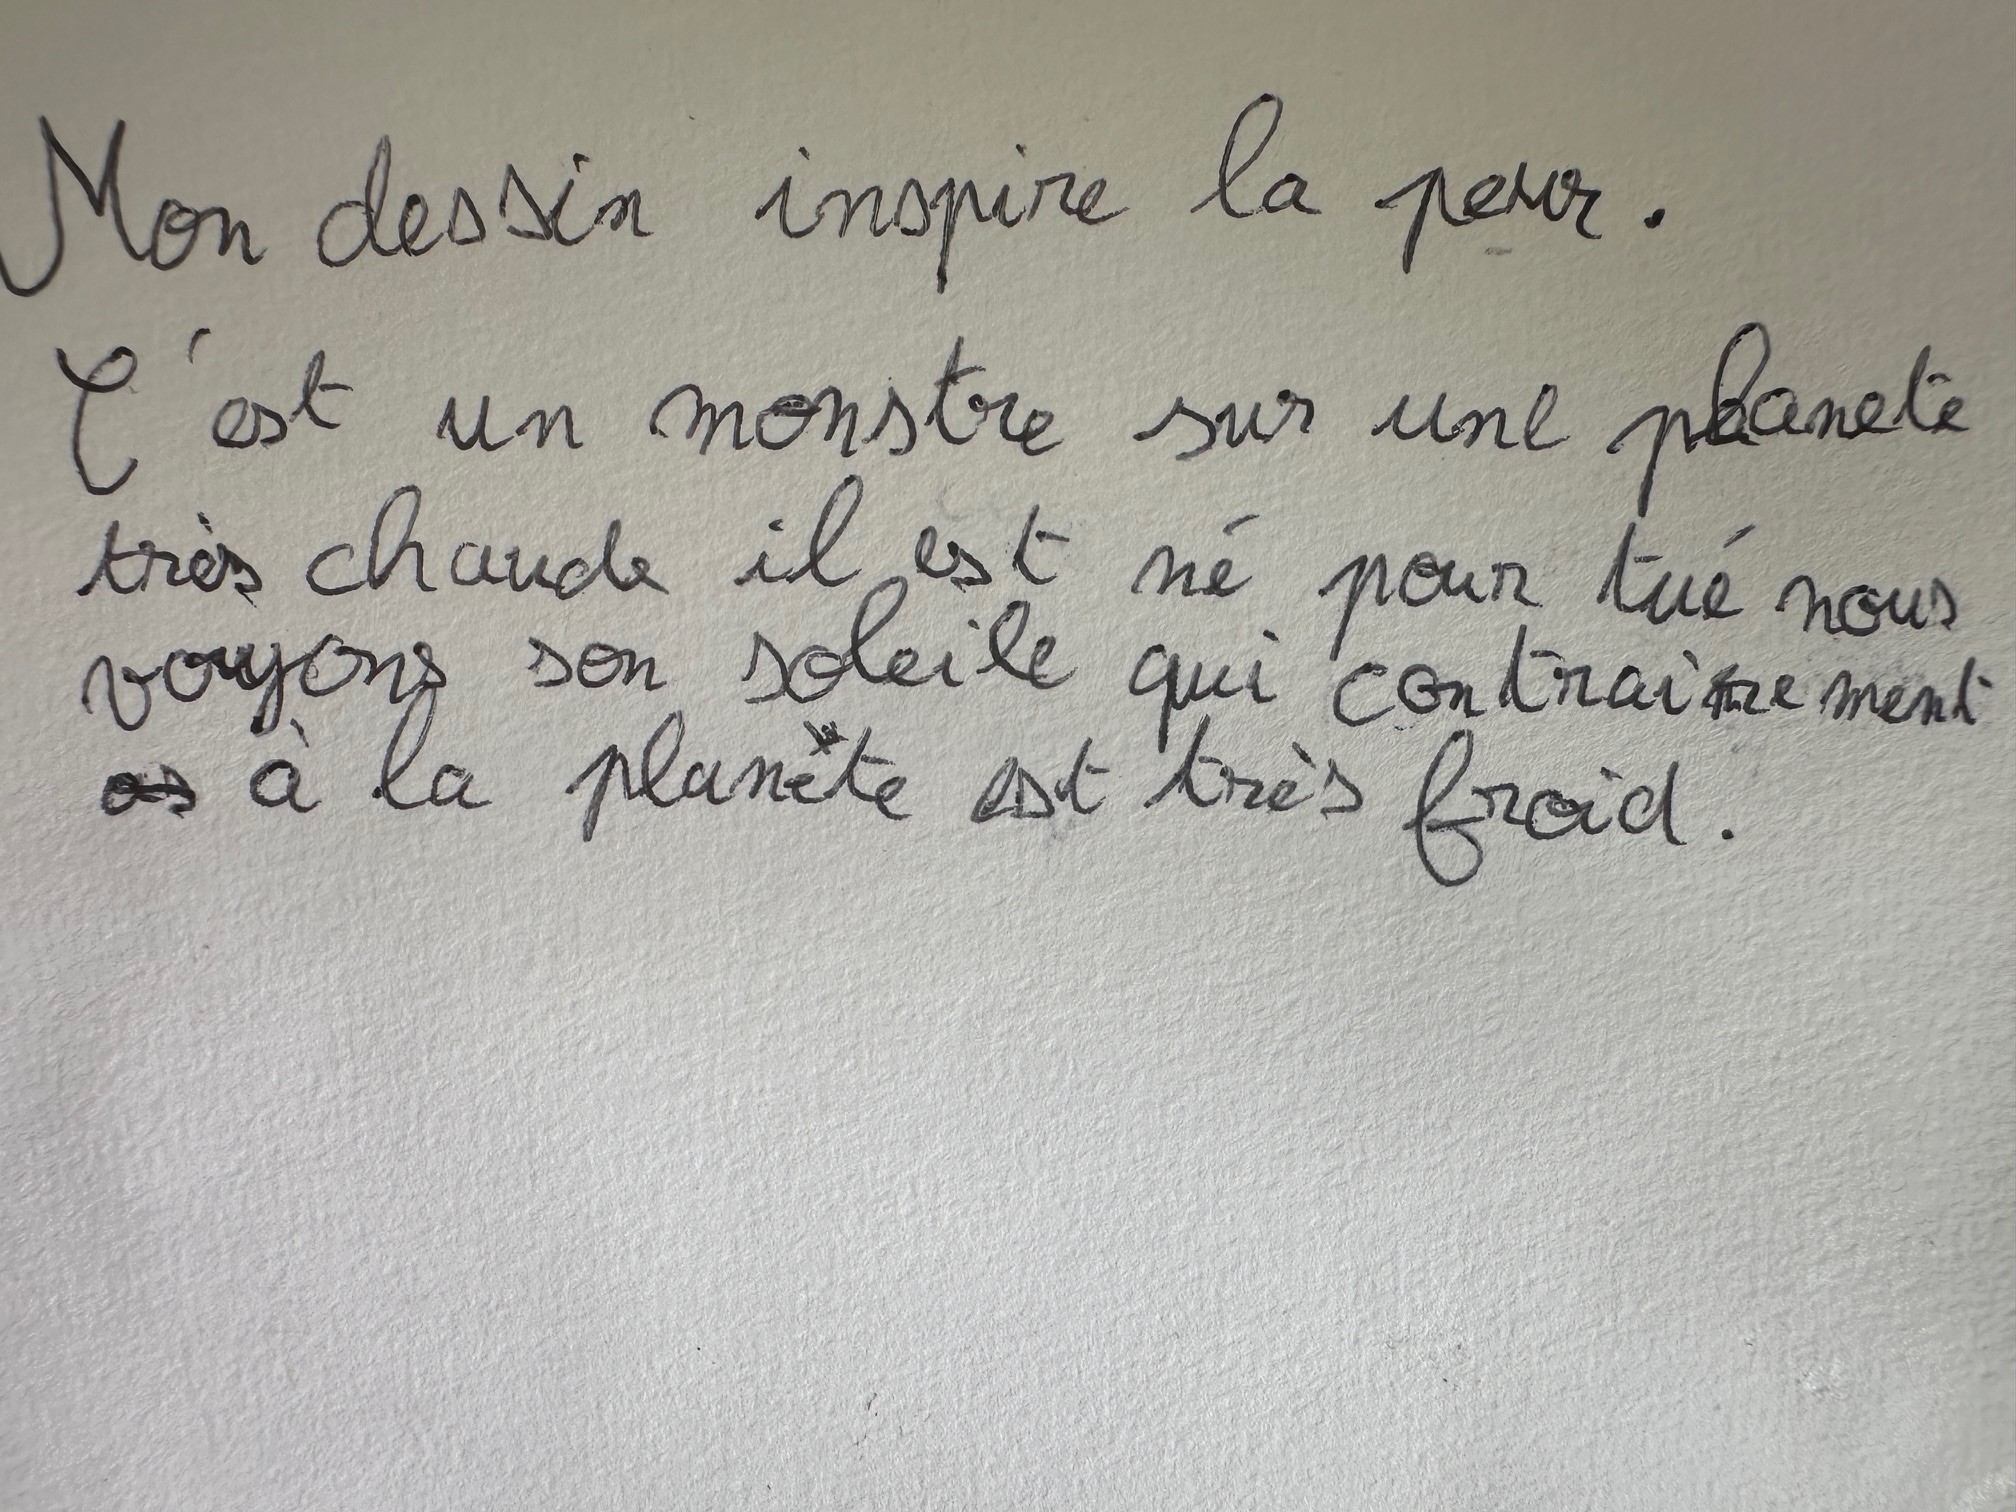 Mon dessin inspire la peur.
C'est un monstre sur une planete
très chaude il est né pour tué nous
voyons son soleile qui contrairement
à la planète est très froid.